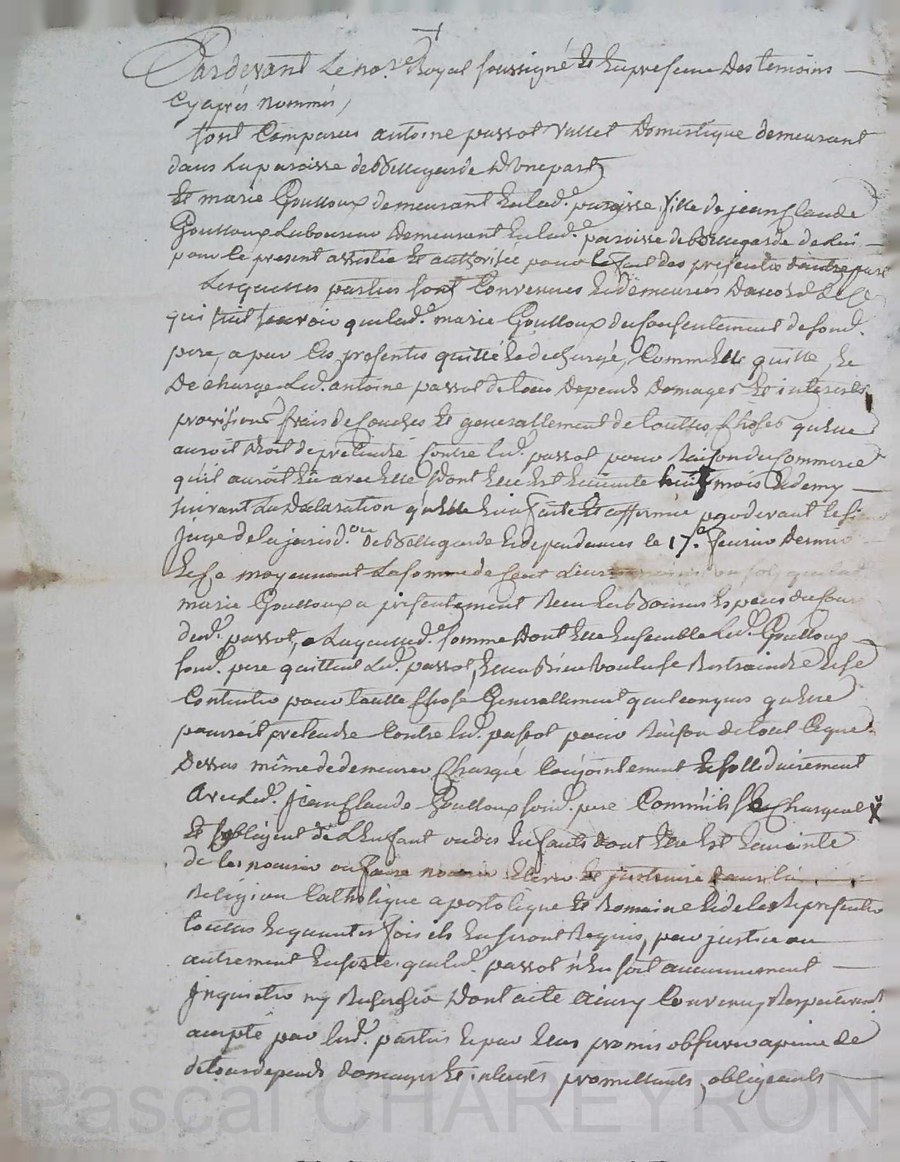 Pardevant Le no.re Royal soussigné Et En presence Des temoins
Cy après nommés,
sont Comparus antoine passot vallet Domestique demeurant
dans La paroisse de Bellegarde D'une part
Et marie Goutloux demeurant En lad.e paroisse, fille de jean Claude
Goutloux Laboureur Demeurant En lad.e paroisse de Bellegarde de Lui
pour le present assistée Et authorisée pour Le fait des presentes d'autre part
Lesquelles parties sont Convenues Et demeurées D'acord De Ce
qui suit sçavoir que lad.e marie Goutloux du Consentement de sond.
pere, a par Ces presentes quitté Et dechargé, Comm'Elle quitte, Et
Decharge Led. antoine passot de tous Depends Domages Et interests
provisions frais de Couches Et generallement de touttes Choses qu'Elle
auroit Droit de pretendre Contre led. passot pour Raison du Commerce
qu'il auroit Eu avec Elle Dont Elle Est Enceinte huit mois Et demy
suivant La Declaration qu'Elle En a faite Et affirmée pardevant Le s.
juge de la jurisd.on De Bellegarde Et dependances le 17.e fevrier Dernier
Et Ce moyennant La somme de Cent Livres que lad.
marie Goutloux a presentement Receu En Bonnes Especes du Cour
dud. passot, De Laquelle d. somme Dont Elle Ensemble Led. Goutloux
sond. pere quittent Led. passot, Elle a Bien voulu se Restraindre Et se
Contenter pour toutte Chose Generallement quelconques qu'Elle
pourroit pretendre Contre led. passot pour Raison de tout Ce que
Dessus même de demeurer Chargée Conjointement Et sollidairement
Avec led. jean Claude Goutloux sond. pere Comm'ils se Chargent
Et s'obligent de L'Enfant ou des Enfants dont Elle Est Enceinte
de les nourrir ou faire nourrir Elever Et instruire dans la
Religion Catholique apostolique Et Romaine Et de les Representer
touttes Et quantes fois ils En seront Requis, par justice ou
autrement En sorte que led. passot n'En soit aucunement
Inquietté ny Recherché Dont acte Ainsy Convenu Respectivement
accepté par lesd. parties Et par Elles promis observer a peine de
de tous depends domages Et interests promettants, obligeants
Pascal CHAREYRON